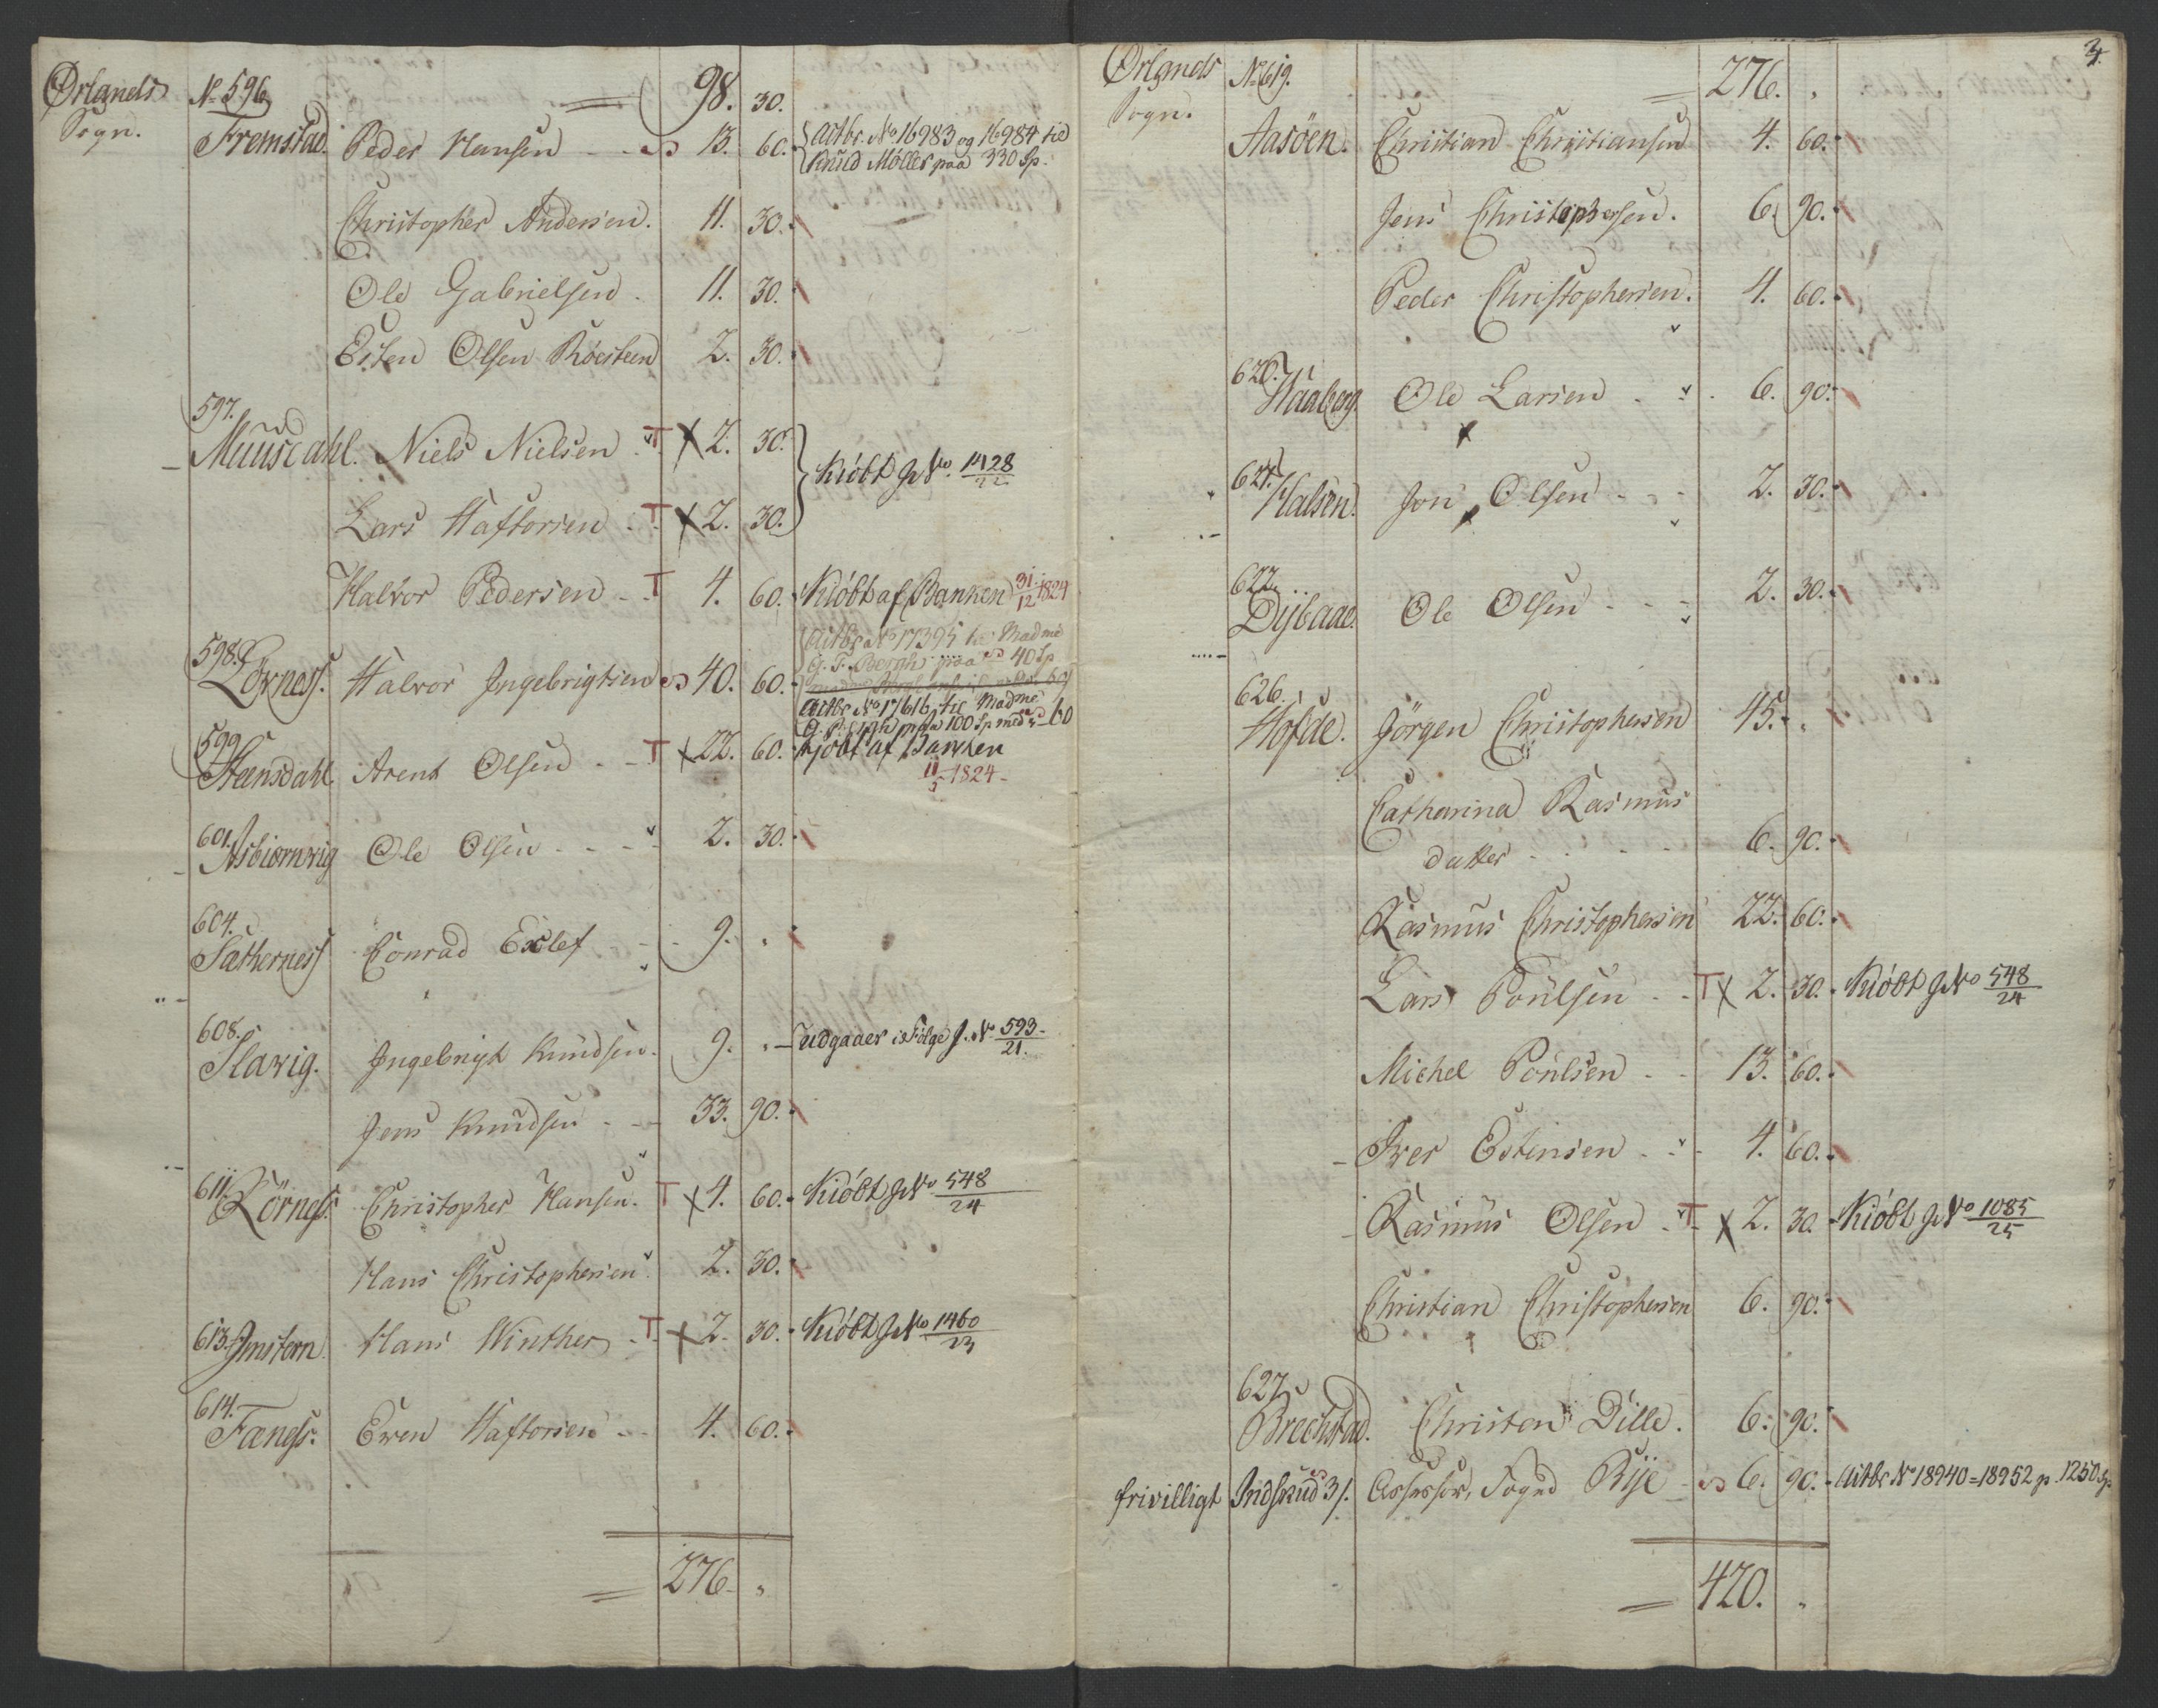 Ørlands
Sogn.
No 596
98. 30.
Fremstad. Peder Hansen 13. 60. Actbr. No 16983 og 16984 til
Knud Møller paa 330 Sp.
Christopher Andersen. 11. 30.
Ole Gabrielsen. 11. 30.
Esten Olsen Röesteen 2. 30.
597.
Muusdahl. Niels Nielsen T x 2. 30.
Kiöbt J No 1428/22
Lars Haftorsen T x 2. 30.
Halvor Pedersen T 4. 60. Kiöbt af Banken 31/12 1824
598. Actbr No 17395 til Madme
paa 40 Sp
Lörness. Halvor Ingebrigtsen 40. 60.
Actbr No 17616 til Madme
paa 100 Sp med 60
599
Steensdahl. Arent Olsen T x 22. 60. Kjöbt af Banken
11/5 1824
601.
Asbiornvig Ole Olsen 2. 30.
604.
Sætherness Conrad Exlef 9. "
608.
Slavig. Ingebrigt Knudsen. 9. " udgaaer i Følge J. No 593/21.
Jens Knudsen 33. 90.
611.
Lörness. Christopher Hansen. T x 4. 60. Kiöbt J No 548/24
Hans Christophersen 2. 30.
613. Hans Winther T x 2. 30. Kiöbt J No 1460/23
614.
Fængs. Ewen Haftorsen 4. 60.
= 276. "
Ørlands
Sogn.
No 619.
= 276. "
Aasöen. Christian Christiansen 4. 60.
Jens Christophersen. 6. 90.
Peder Christophersen. 4. 60.
620.
Haaberg. Ole Larsen 6. 90.
621.
Halsen. Jon Olsen 2. 30.
622.
Dÿbaae. Ole Olsen 2. 30.
626.
Höfde. Jörgen Christophersen 45. "
Catharina Rasmus
datter 6. 90.
Rasmus Christophersen 22. 60.
Lars Poulsen T x 2. 30. Kiöbt J No 548/24
Michel Poulsen 13. 60.
Iver Estensen 4. 60.
Rasmus Olsen T x 2. 30. Kiöbt J No 1085/25
Christian Christophersen 6. 90.
627.
Brechstad. Christen Dille. 6. 90.
frivilligt Indskud 3/. Assessor, Foged Rÿe 6. 90. Actbr No 18940 = 18952 p. 1250 Sp.
= 420. "